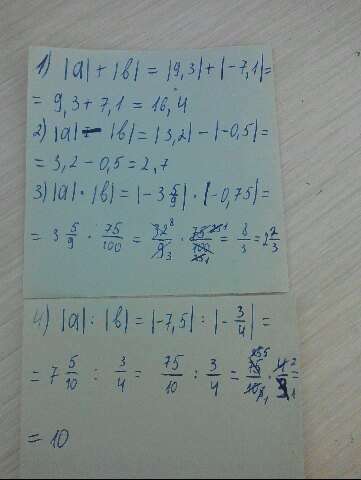 1) |a| + |b| = |9,3| + |-7,1| =
= 9,3 + 7,1 = 16,4
2) |a| - |b| = |3,2| - |-0,5| =
= 3,2 - 0,5 = 2,7
3) |a| · |b| = |-3 5/9| · |-0,75| =
= 3 5/9 · 75/100 = 32/9 · 75/100 = 8/3 = 2 2/3
4) |a| : |b| = |-7,5| : |-3/4| =
= 7 5/10 : 3/4 = 75/10 : 3/4 = 75/10 · 4/3 =
= 10